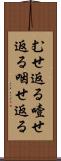 むせ返る噎せ
返る咽せ返る